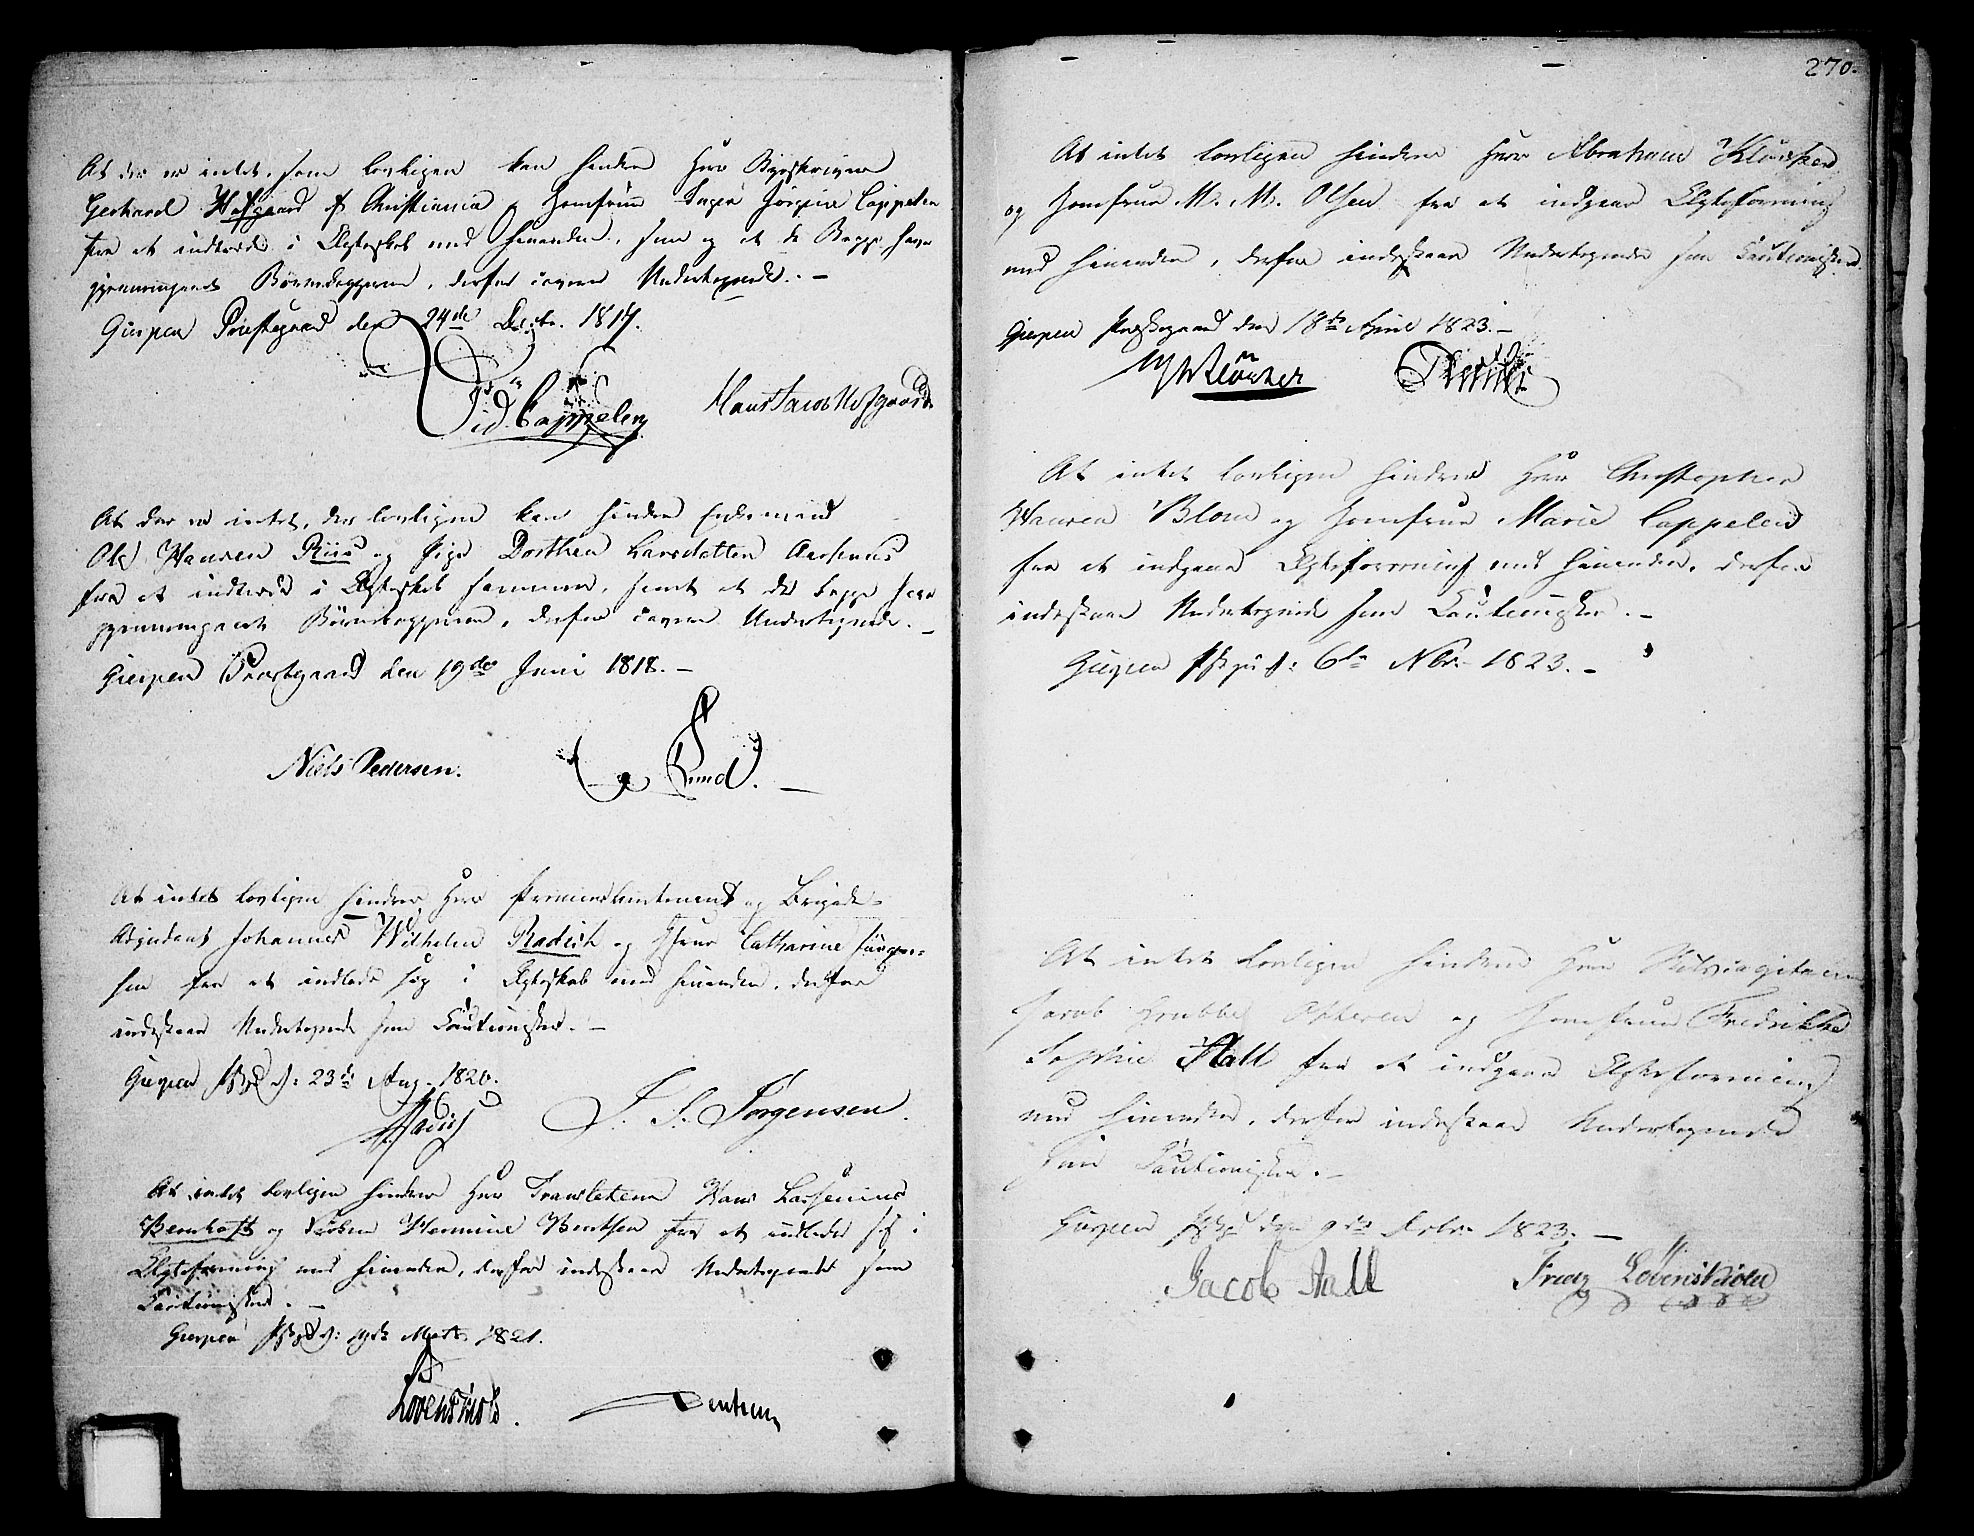 At der er intet, som lovligen kan hindre Herr Byeskriver
Gerhard Hofgaard af Christiania og Jomfrue Inger Jørgine Cappelen
fra at indtræde i Ægteskab med hinanden, som og at de Begge have
gjennemgaaet Børnekopperne, derfor cavere Undertegnede. –
Gierpen Præstegaard den 24de Decbr. 1817.
Did. Cappelen Hans Jacob Hofgaard
At der er intet, der lovligen kan hindre Enkemand
Ole Hansen Riis og Pige Dorthea Larsdatter Aarhuus
fra at indtræde i Ægteskab sammen, samt at de begge have
gjennemgaaet Børnekopperne, derfor cavere Undertegnede. –
Gierpen Præstegaard den 19de Juni 1818. –
Niels Pedersen. Lund. –
At intet lovligen hindrer Herr Premierlieutenant og Brigade-
Adjudant Johannes Wilhelm Radich og Jfrue Catharine Jørgen-
sen fra at indlade sig i Ægteskab med hinanden, derfor
indestaae Undertegnede som Cautionister. –
Gierpen Pstgd d: 23de Aug. 1820.
Radich J. S. Jørgensen.
At intet lovligen hindrer Herr Translateur Hans Lassenius
Bernhoft og Frøken Hermine Bentsen fra at indlade sig i
Ægteforening med hinanden, derfor indestaae Undertegnede som
Cautionister. –
Gierpen Pstgd d: Marts 1821.
Løvenskiold. Bentsen
270.
At intet lovligen hindrer Herr Abraham Kløcker
og Jomfrue M. M. Olsen fra at indgaae Ægteforening
med hinanden, derfor indestaae Undertegnede som Cautionister.
Gierpen Præstegaard den 18de April 1823. –
Kløcker
At intet lovligen hindrer Herr Christopher
Hansen Blom og Jomfrue Marie Cappelen
fra at indgaae Ægteforening med hinanden, derfor
indestaae Undertegnede som Cautionister. –
Gierpen d: 6te Nbr. 1823. –
At intet lovligen hindrer Herr
Jacob Grubbe og Jomfrue Fredrikke
Sophie Aall fra at indgaae Ægteforening
med hinanden, derfor indestaae Undertegnede
som Cautionister. –
Gierpen Pstgd den 9de Debr. 1823. –
Jacob Aall Løvenskiold